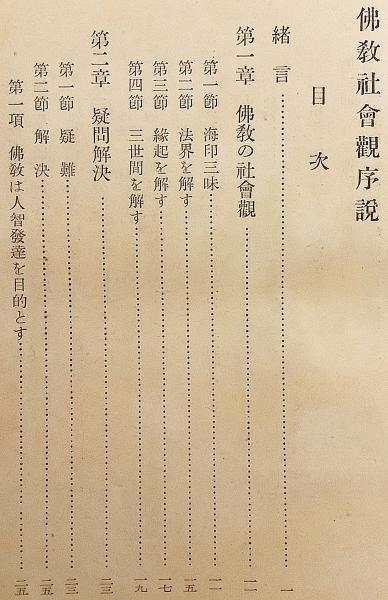 佛教社會觀序說
目次
緒言……………………一
第一章 佛教の社會觀……………………一一
第一節 海印三昧……………………一一
第二節 法界を解す……………………一五
第三節 緣起を解す……………………一七
第四節 三世間を解す……………………一九
第二章 疑問解決……………………二三
第一節 疑難……………………二三
第二節 解決……………………二五
第一項 佛教は人智發達を目的とす……………………二五